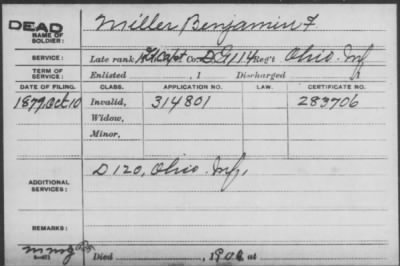 DEAD
NAME OF SOLDIER: Miller Benjamin F.
SERVICE: Late rank, Capt Co. D, G, 114 Reg't Ohio Inf
TERM OF SERVICE: Enlisted , 1 Discharged
DATE OF FILING. CLASS. APPLICATION NO. LAW. CERTIFICATE NO.
1879, Oct. 10 Invalid, 314801 283706
Widow,
Minor,
ADDITIONAL SERVICES: D 120, Ohio Inf,
REMARKS:
Died , 190 at